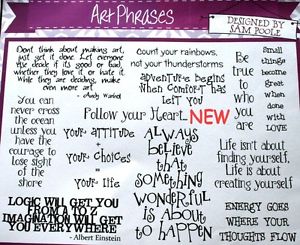 ArtPhrases
DESIGNED BY
SAM POOLE
Don't think about making art,
just get it done. Let everyone
else decide if its good or bad,
whether they love it or hate it.
While they are deciding, make
even more art
-Andy Warhol
count your rainbows,
not your thunderstorms
adventure begins
When comfort has
left you
Be
true
to
who
you
are
Small
things
become
great
when
done
with
LOVE
Follow your Heart.
NEW
You can
never cross
the ocean
unless you
have the
courage to
lose sight
of the
shore
your attitude
+
your choices
=
your life
ALWAYS
believe
that
something
wonderful
is about
to happen
Life isn't about
finding yourself.
Life is about
creating yourself
LOGIC WILL GET YOU
FROM A TO Z
IMAGINATION WILL GET
YOU EVERYWHERE
- Albert Einstein
ENERGY GOES
WHERE YOUR
THOUGHTS FLOW